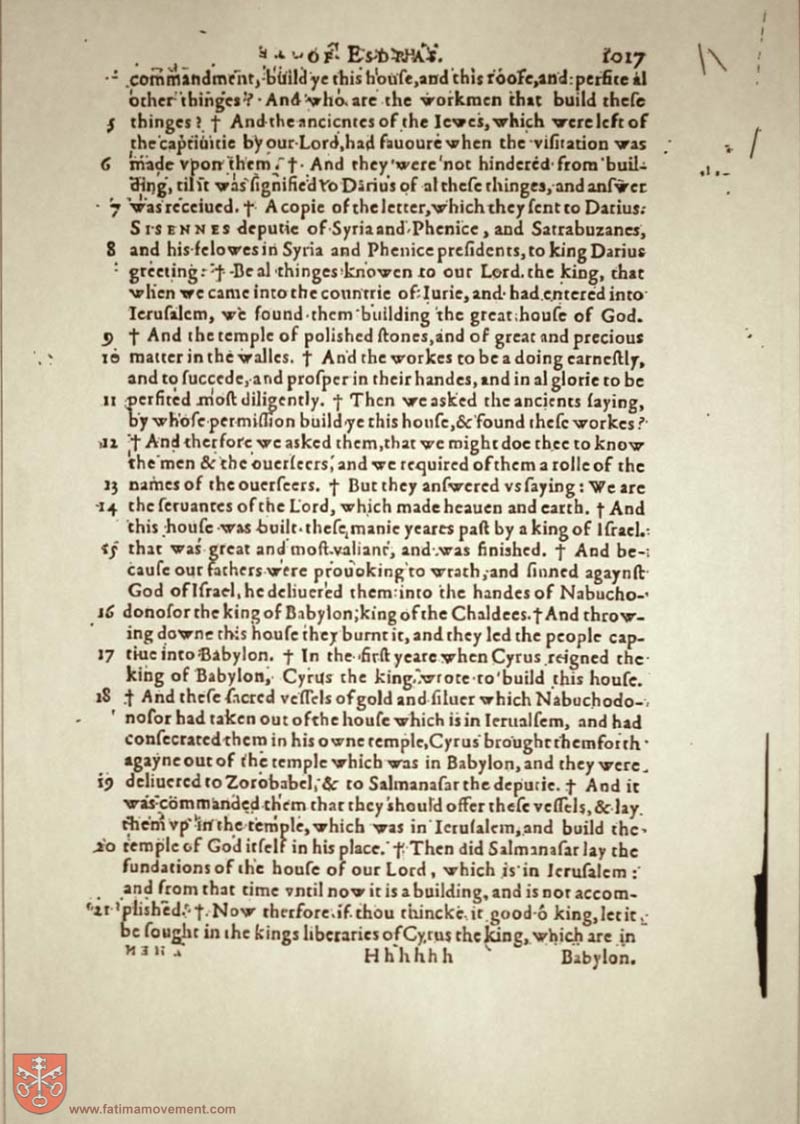 OF ESDRAS. 1017
commandment, build ye this house, and this roofe, and perfite al
other thinges? And who are the workmen that build theſe
5 thinges? † And the ancientes of the Iewes, which were left of
the captiuitie by our Lord, had fauoure when the viſitation was
6 made vpon them. † And they were not hindered from buil-
ding, til it was ſignified to Darius of al theſe thinges, and anſwer
7 was receiued. † A copie of the letter, which they ſent to Darius:
SISENNES deputie of Syria and Phenice, and Satrabuzanes,
8 and his felowes in Syria and Phenice preſidents, to king Darius
greeting: † Be al thinges knowen to our Lord the king, that
when we came into the countrie of Iurie, and had entered into
Ieruſalem, we found them building the great houſe of God.
9 † And the temple of poliſhed ſtones, and of great and precious
10 matter in the walles. † And the workes to be a doing earneſtly,
and to ſuccede, and proſper in their handes, and in al glorie to be
11 perfited moſt diligently. † Then we asked the ancients ſaying,
by whoſe permiſſion build ye this houſe, & found theſe workes?
12 † And therfore we asked them, that we might doe thee to know
the men & the ouerſeers, and we required of them a rolle of the
13 names of the ouerſeers. † But they anſwered vs ſaying: We are
14 the ſeruantes of the Lord, which made heauen and earth. † And
this houſe was built theſe manie yeares paſt by a king of Iſrael.
15 that was great and moſt valiant, and was finiſhed. † And be-
cauſe our fathers were prouoking to wrath, and ſinned agaynſt
God of Iſrael, he deliuered them into the handes of Nabucho-
16 donoſor the king of Babylon, king of the Chaldees. † And throw-
ing downe this houſe they burnt it, and they led the people cap-
17 tiue into Babylon. † In the firſt yeare when Cyrus reigned the
king of Babylon, Cyrus the king wrote to build this houſe.
18 † And theſe ſacred veſſels of gold and ſiluer which Nabuchodo-
noſor had taken out of the houſe which is in Ierualſem, and had
conſecrated them in his owne temple, Cyrus brought them forth
agayne out of the temple which was in Babylon, and they were
19 deliuered to Zorobabel, & to Salmanaſar the deputie. † And it
was commanded them that they ſhould offer theſe veſſels, & lay
them vp in the temple, which was in Ieruſalem, and build the
20 temple of God itſelf in his place. † Then did Salmanaſar lay the
fundations of the houſe of our Lord, which is in Ieruſalem:
and from that time vntil now it is a building, and is not accom-
21 pliſhed. † Now therfore if thou thincke it good ô king, let it
be ſought in the kings liberaries of Cyrus the king, which are in
Hhhhhh Babylon.
www.fatimamovement.com